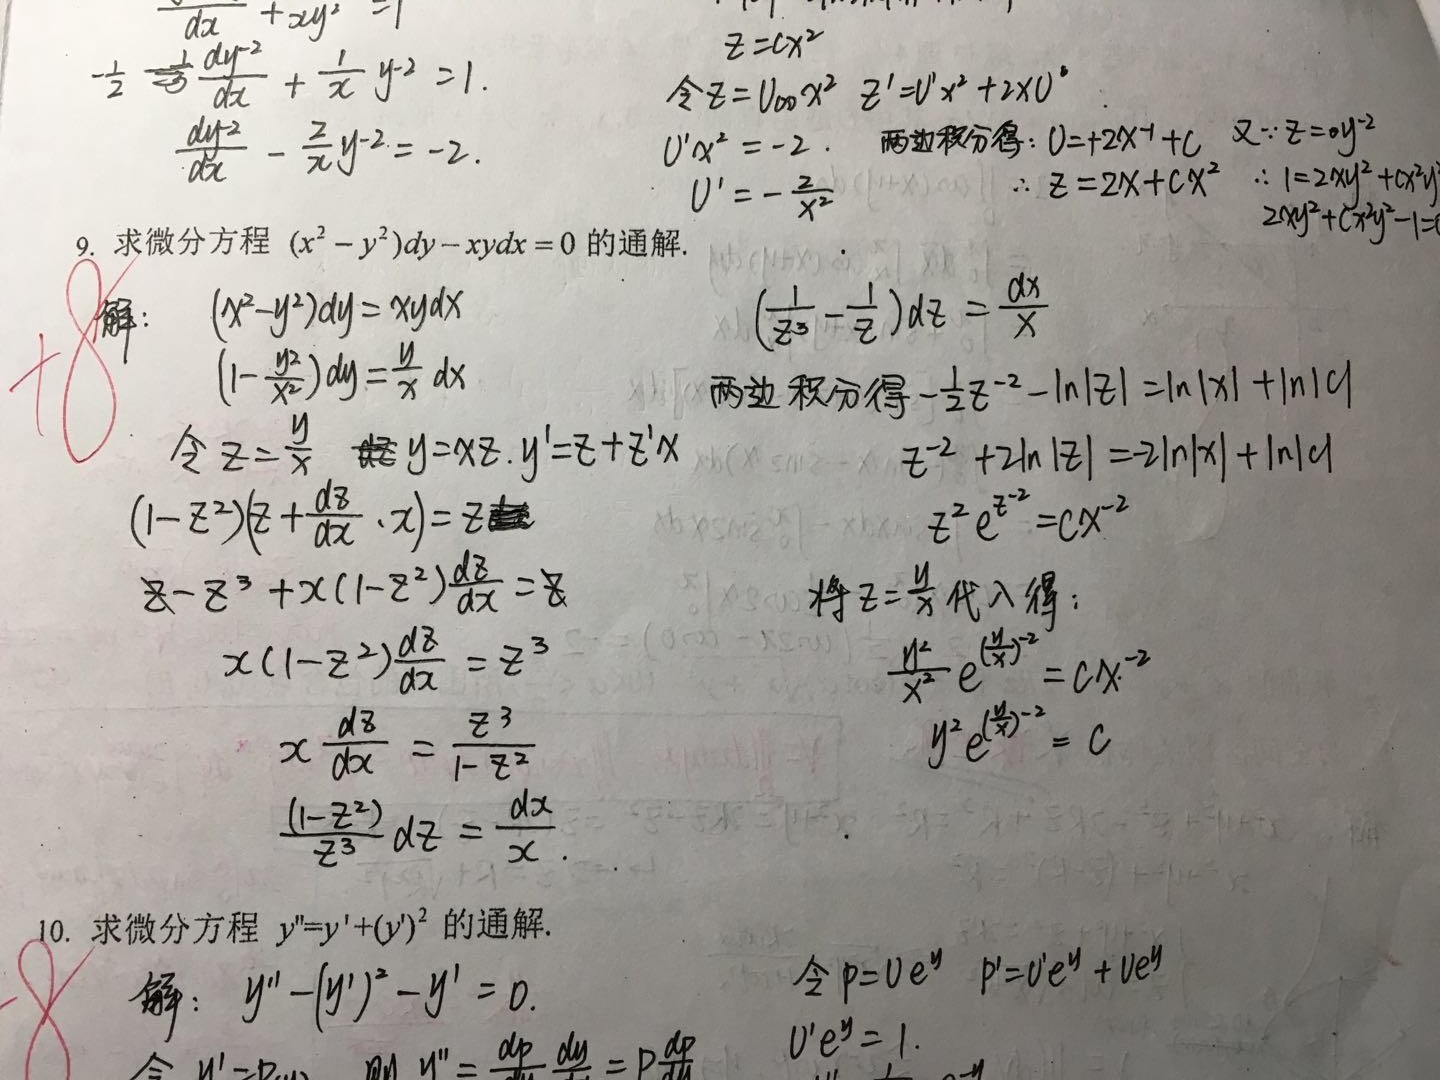 dx + xy² = 1
-1/2 dy⁻²/dx + 1/x y⁻² = 1.
dy⁻²/dx - 2/x y⁻² = -2.
z = cx²
令 z = U(x) x² z' = U'x² + 2xU
U'x² = -2. 两边积分得: U = +2x⁻¹ + C 又∵ z = y⁻²
U' = - 2/x² ∴ z = 2x + Cx² ∴ 1 = 2xy² + Cx²y²
2xy² + Cx²y² - 1 = 0
9. 求微分方程 (x² - y²)dy - xydx = 0 的通解.
+8
解: (x² - y²)dy = xydx
(1 - y²/x²)dy = y/x dx
令 z = y/x y = xz. y' = z + z'x
(1 - z²)(z + dz/dx · x) = z
z - z³ + x(1 - z²) dz/dx = z
x(1 - z²) dz/dx = z³
x dz/dx = z³/(1 - z²)
(1 - z²)/z³ dz = dx/x.
(1/z³ - 1/z)dz = dx/x
两边积分得 -1/2 z⁻² - ln|z| = ln|x| + ln|C|
z⁻² + 2ln|z| = -2ln|x| + ln|C|
z² e^(z⁻²) = Cx⁻²
将 z = y/x 代入得:
y²/x² e^((y/x)⁻²) = Cx⁻²
y² e^((y/x)⁻²) = C
10. 求微分方程 y''=y'+(y')² 的通解.
-8
解: y'' - (y')² - y' = 0.
令 y' = P(y) 则 y'' = dp/dy dy/dx = P dp/dy
令 P = Ue^y P' = U'e^y + Ue^y
U'e^y = 1.